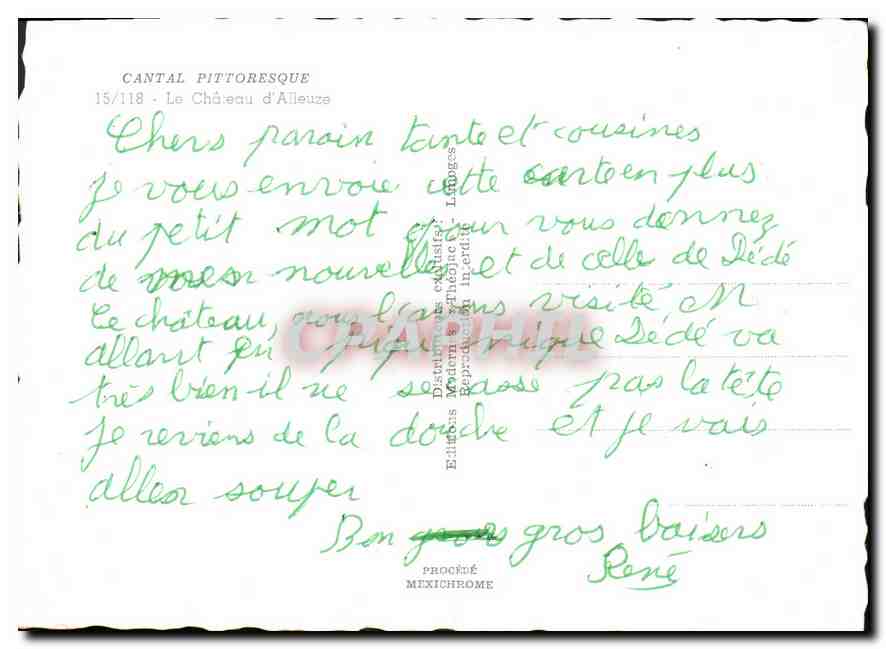 CANTAL PITTORESQUE
15/118 - Le Château d'Alleuze
Chers parain tante et cousines
Je vous envoie cette carte en plus
du petit mot pour vous donnez
de mes nouvelles et de celle de Dédé
Ce château, nous l'avons visité,
allant en pique nique Dédé va
très bien il ne se casse pas la tête
Je reviens de la douche et je vais
aller souper
Bon gros baisers
René
PROCÉDÉ
MEXICHROME
Distributeurs exclusifs:
Editions Modernes "Théojac" - Limoges
Reproduction interdite
CPAPHIL